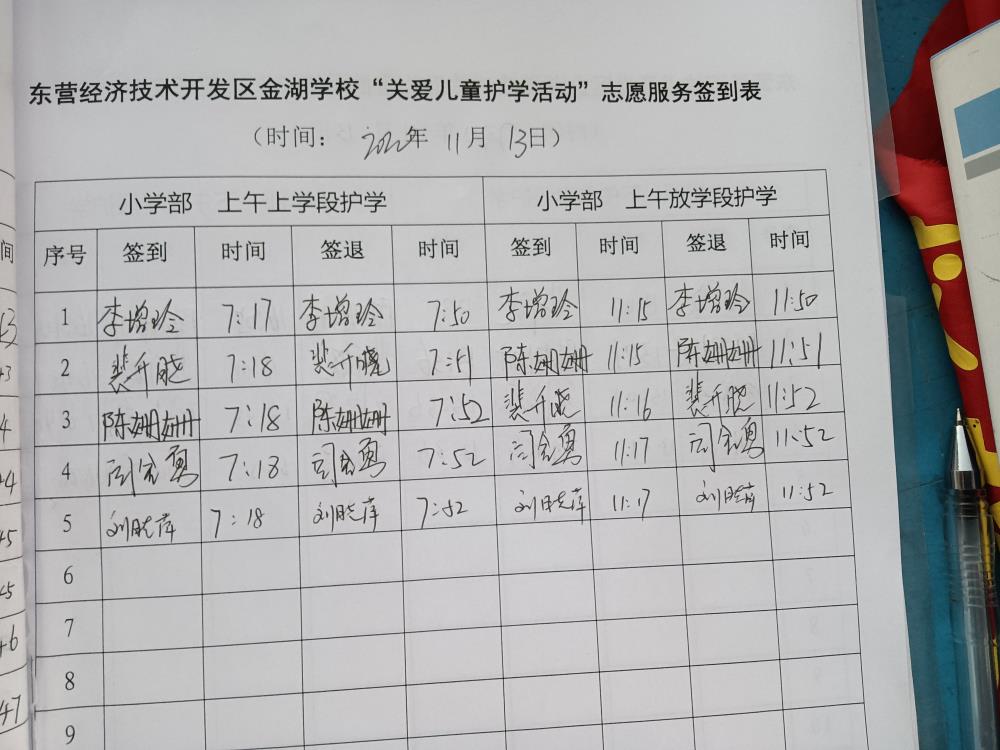 东营经济技术开发区金湖学校“关爱儿童护学活动”志愿服务签到表
（时间： 2020年 11月 13日）
小学部 上午上学段护学 小学部 上午放学段护学
序号 签到 时间 签退 时间 签到 时间 签退 时间
1 李增玲 7:17 李增玲 7:50 李增玲 11:15 李增玲 11:50
2 裴升晓 7:18 裴升晓 7:51 陈姗姗 11:15 陈姗姗 11:51
3 陈姗姗 7:18 陈姗姗 7:52 裴升晓 11:16 裴升晓 11:52
4 7:18 7:52 11:17 11:52
5 刘晓萍 7:18 刘晓萍 7:52 刘晓萍 11:17 刘晓萍 11:52
6
7
8
9
间
43
43
4
44
45
45
46
47